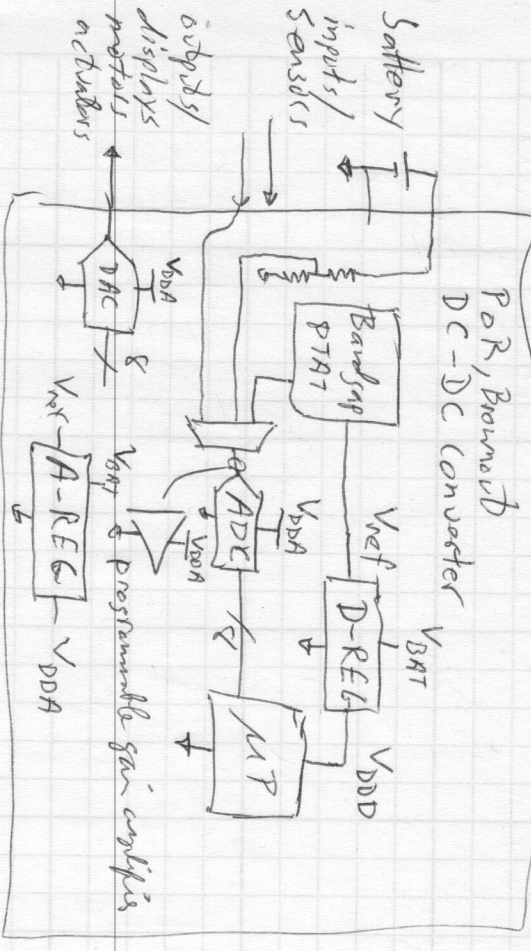 PoR, Brownout
DC-DC Converter
battery
inputs/
sensors
outputs/
displays
motors
actuators
Bandgap
PTAT
Vref
VBAT
D-REG
VDDD
VDDA
ADC
8
μP
VDDA
DAC
8
VDDA
programmable gain amplifier
VBAT
Vref
A-REG
VDDA